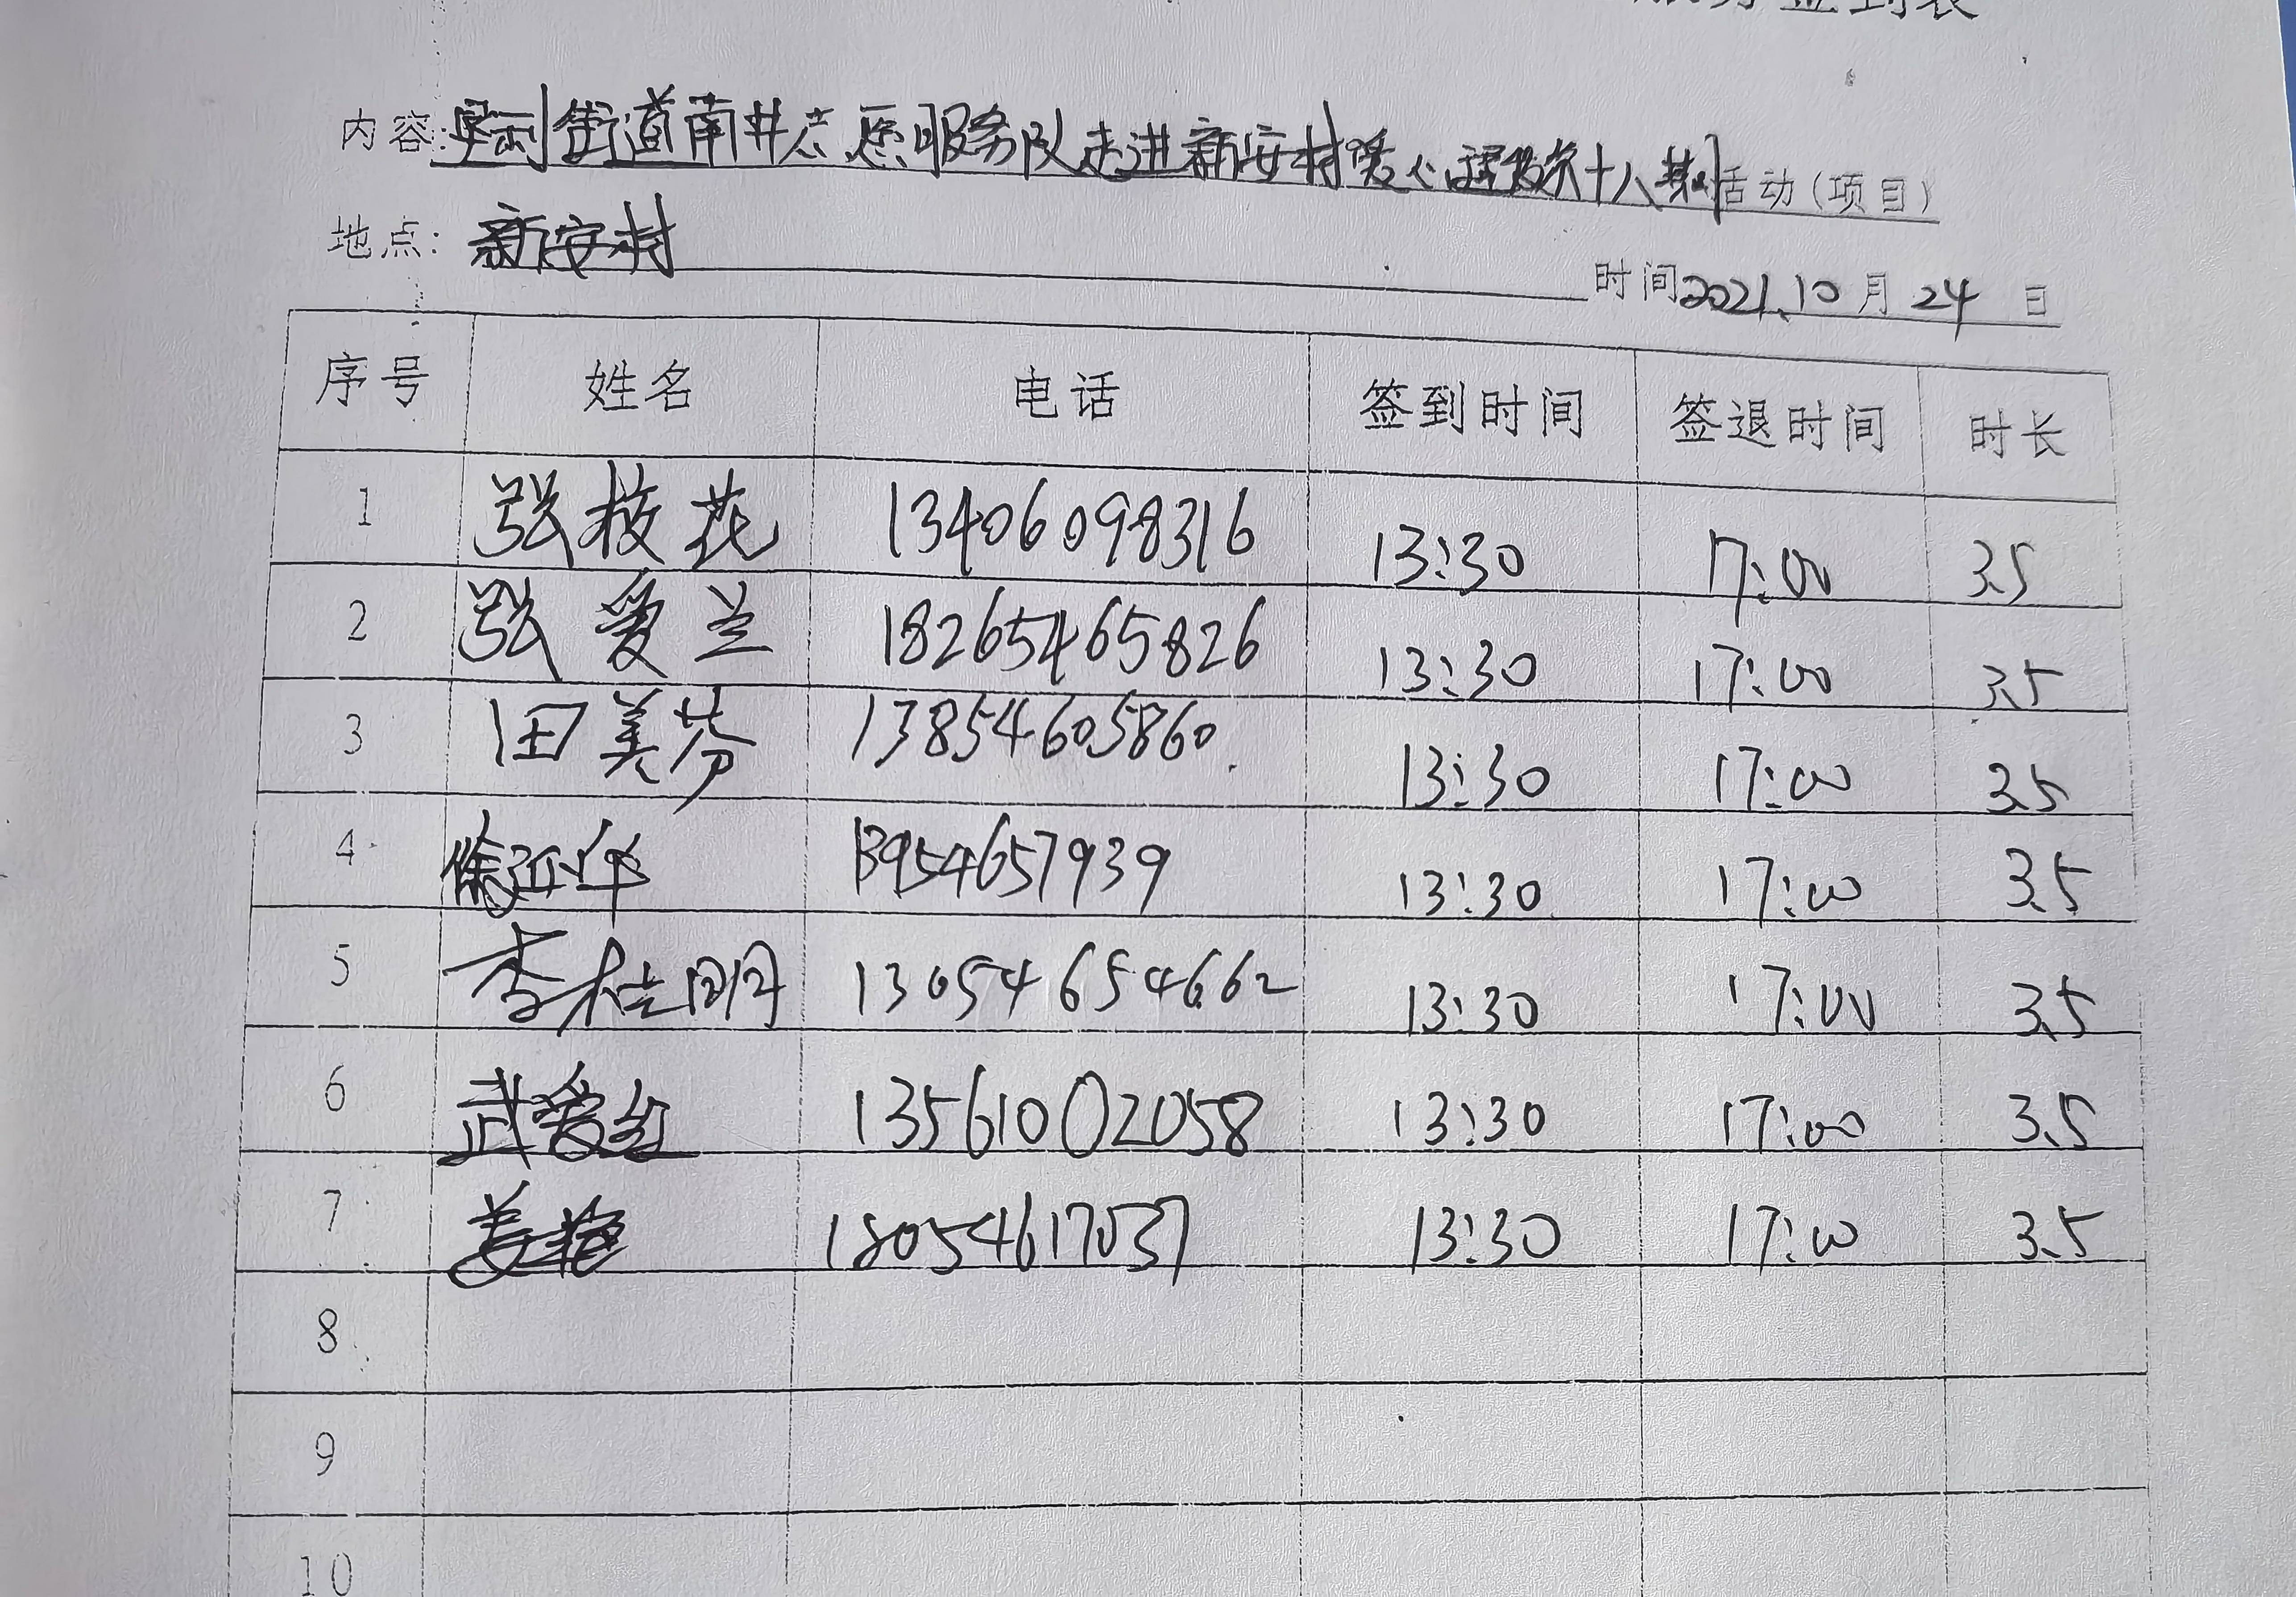 签到表
内容:垦利街道南井志愿服务队走进新安村爱心理发第十八期活动(项目)
地点: 新安村
时间2021.10月24日
序号 姓名 电话 签到时间 签退时间 时长
1 张枝花 13406098316 13:30 17:00 3.5
2 张爱兰 18265465826 13:30 17:00 3.5
3 田美芬 13854605860 13:30 17:00 3.5
4 徐延华 13954657939 13:30 17:00 3.5
5 李桂明 13054654662 13:30 17:00 3.5
6 武爱红 13561002058 13:30 17:00 3.5
7 姜艳 18054617037 13:30 17:00 3.5
8
9
10